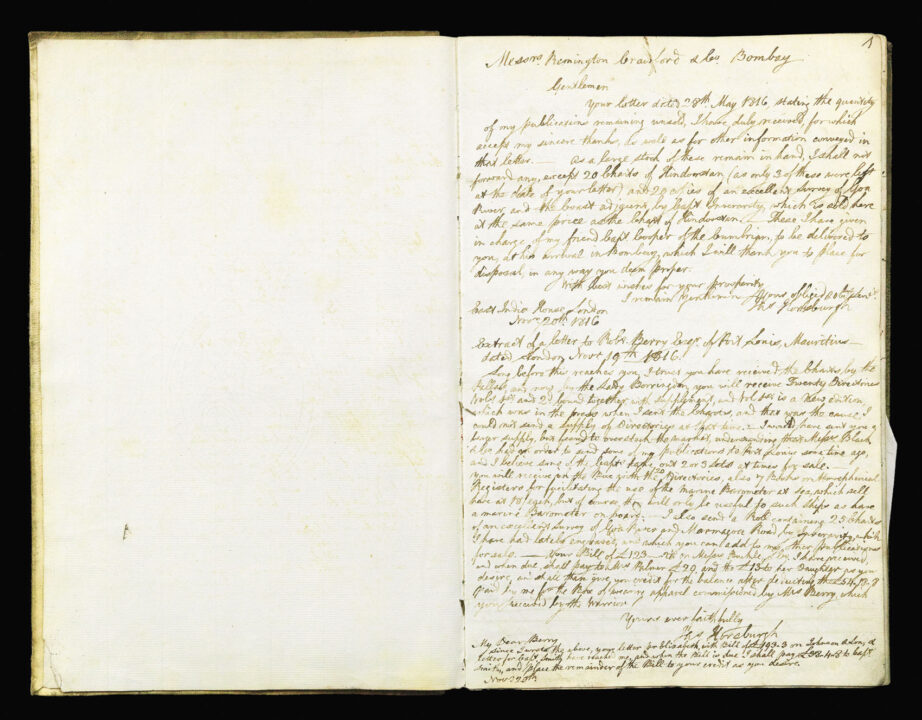 1
Messrs. Remington Crawford & Co. Bombay
Gentlemen
Your letter dated 28th. May 1816, stating the quantity
of my publications remaining unsold, I have duly received, for which
accept my sincere thanks, as well as for other information conveyed in
that letter. — As a large stock of these remain in hand, I shall not
forward any, except 20 Charts of Hindostan (as only 3 of these were left
at the date of your letter) and 20 copies of an excellent Survey of Goa
River, and the Coast adjacent, by Capt. Inverarity, which is sold here
at the same price as the Chart of Hindostan. — These I have given
in charge of my friend Capt. Cooper of the Cumbrian, to be delivered to
you, at his arrival in Bombay, which I will thank you to place for
disposal, in any way you deem proper.
With best wishes for your prosperity
I remain Gentlemen Yours obliged
Jas Horsburgh
East India House, London
Novr. 20th 1816
Extract of a letter to Robt. Berry Esqr. of Port Louis, Mauritius —
dated London Novr 19th 1816.
Long before this reaches you, I trust you have received the Charts, by the
and now, by the Lady Borringdon, you will receive Twenty Directories
Vols 1st and 2d bound together with Supplement, and Vol 1st is a New edition,
which was in the press when I sent the Charts, and that was the cause I
could not send a supply of Directories at that time. — I would have sent you a
larger supply, but feared to overstock the market, understanding that Messrs Black
also had an order to send some of my publications to Port Louis some time ago,
and I believe some of the Capts take out 2 or 3 Sets at times for sale. —
You will receive in the Box with the Directories, also 7 Books or Atmospherical
Registers for facilitating the use of the Marine Barometer at Sea, which sell
here at each, but of course, they will only be useful to such Ships as have
a marine Barometer on board. — I also send a Roll containing 25 Charts
of an excellent survey of Goa River and Marmagoa Road by Inverarity, which
I have had lately engraved, and which you can add to my other publications
for sale. — Your Bill of £123 on Messrs I have received,
and when due, shall pay to Mrs £20, and the £13 to her Daughter as you
desire, and shall then give you credit for the balance after deducting the
paid by me for the Box of wearing apparel commissioned by Mrs Berry, which
you received by the Warrior
Yours ever faithfully
Jas Horsburgh
My Dear Berry
Since I wrote the above, your letter with Bill of £193.3 on Johnson & Sons, &
letter for Capt. Smith, have reached me, and when the Bill is due I shall pay £38.4.8 to Capt
Smith, and place the remainder of the Bill to your credit as you desire.
Nov 20th